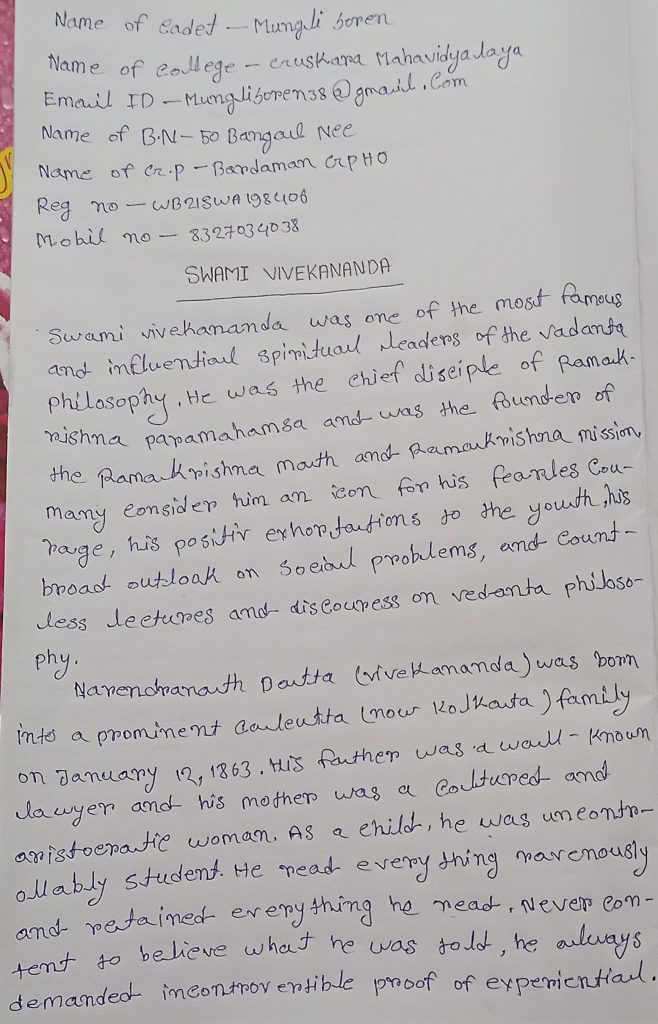 Name of Cadet - Mungli Soren
Name of College - Gushkara Mahavidyalaya
Email ID - Munglisoren38@gmail.Com
Name of B.N - 50 Bangal Ncc
Name of Gr.p - Bardaman GrpHQ
Reg no - WB21SWA198406
Mobil no - 8327034038
SWAMI VIVEKANANDA
Swami vivekananda was one of the most famous
and influential spiritual leaders of the vadanta
philosophy. He was the chief disciple of Ramak-
rishna paramahamsa and was the founder of
the Ramakrishna math and Ramakrishna mission,
many consider him an icon for his fearles Cou-
rage, his positiv exhortations to the youth, his
broad outloak on social problems, and Count-
less lectures and discouress on vedanta philoso-
phy.
Narendranath Datta (vivekananda) was born
into a prominent calcutta (now Kolkata) family
on January 12, 1863. His father was a wall-known
lawyer and his mother was a coultured and
aristocratic woman. As a child, he was uncontro-
ollably student. He read every thing ravenously
and retained everything he read, Never con-
tent to believe what he was told, he always
demanded incontrovertible proof of experiential.